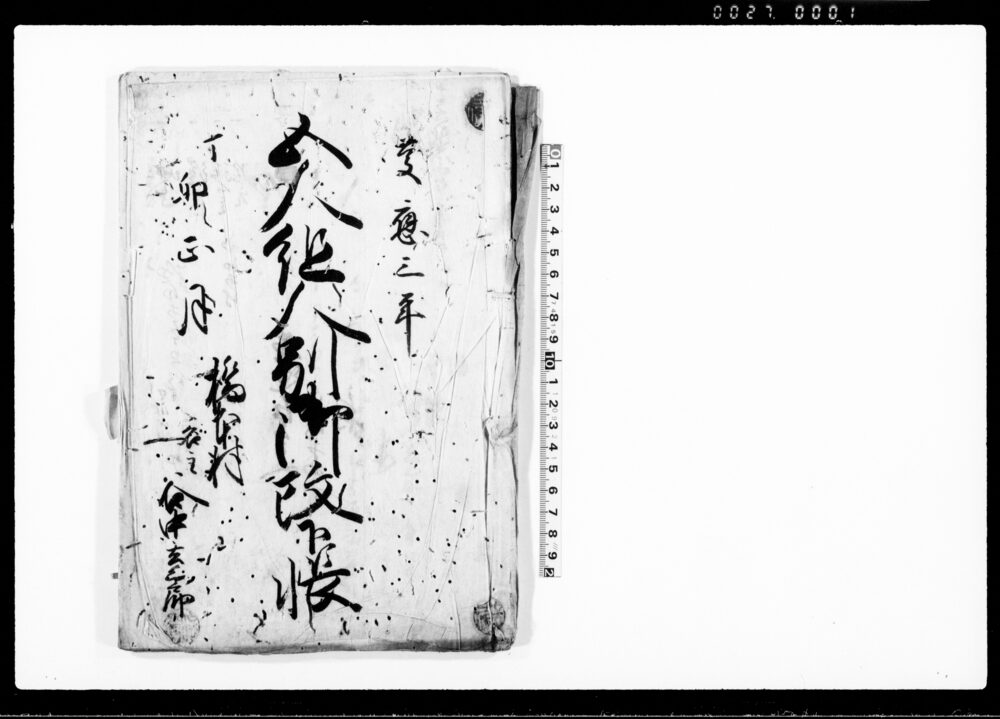 0027 0001
慶應三年
五人組人別御改下帳
丁卯正月
橋本村
名主
谷中玄三郎
0 1 2 3 4 5 6 7 8 9 10 1 2 3 4 5 6 7 8 9 2